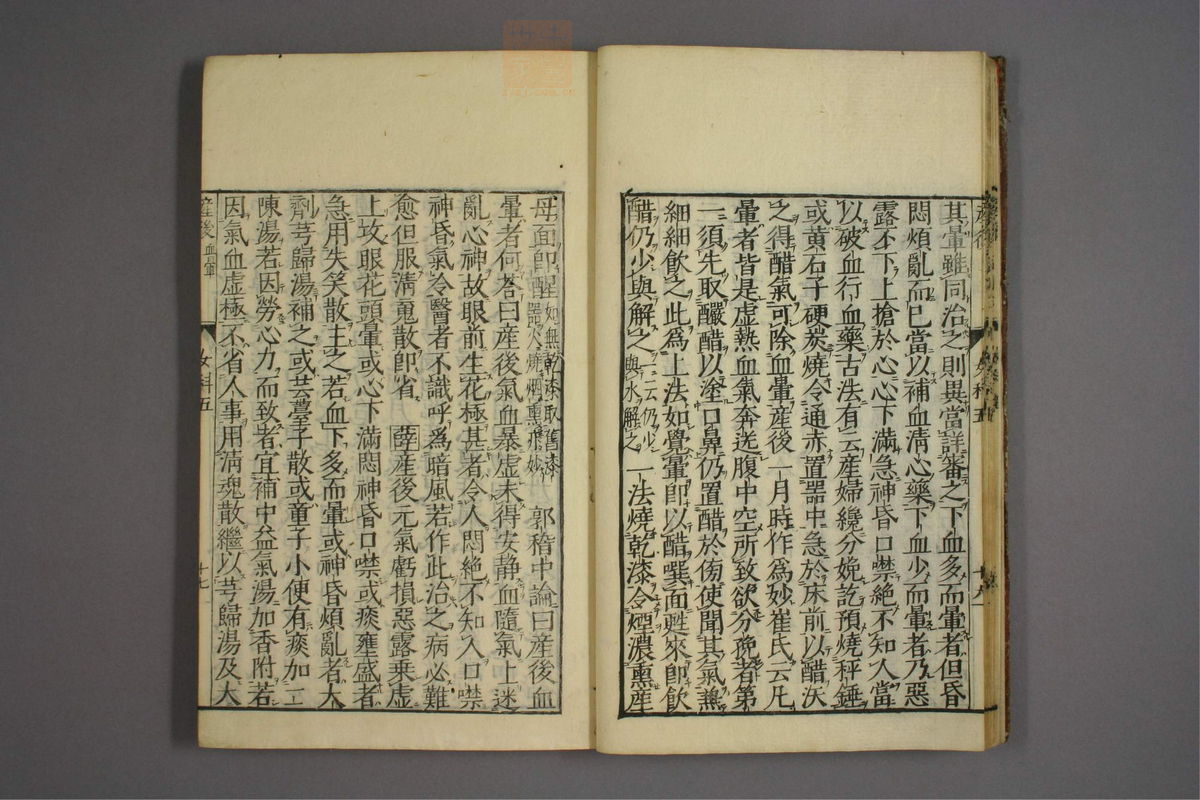 其暈雖同治之則異當詳審之下血多而暈者但昏
悶煩亂而已當以補血清心藥下血少而暈者乃惡
露不下上搶於心心下滿急神昏口噤絶不知人當
以破血行血藥古法有云產婦纔分娩訖預燒秤錘
或黃石子硬炭燒令通赤置器中急於床前以醋沃
之得醋氣可除血暈產後一月時作爲妙崔氏云凡
暈者皆是虛熱血氣奔迸腹中空所致欲分娩者第
一須先取釅醋以塗口鼻仍置醋於傍使聞其氣兼
細細飲之此爲上法如覺暈即以醋噀面甦來即飲
醋仍少與解之一云仍少與水解之一法燒乾漆令煙濃熏產
母面即醒如無乾漆取舊漆器火燒烟熏亦妙 郭稽中論曰產後血
暈者何荅曰產後氣血暴虛未得安静血隨氣上迷
亂心神故眼前生花極甚者令人悶絶不知人口噤
神昏氣冷醫者不識呼爲暗風若作此治之病必難
愈但服清䰟散即省 薛產後元氣虧損惡露乗虛
上攻眼花頭暈或心下滿悶神昏口噤或痰壅盛者
急用失笑散主之若血下多而暈或神昏煩亂者大
劑芎歸湯補之或芸薹子散或童子小便有痰加二
陳湯若因勞心力而致者宜補中益氣湯加香附若
因氣血虛極不省人事用清魂散繼以芎歸湯及大
產後血暈 女科五 十七